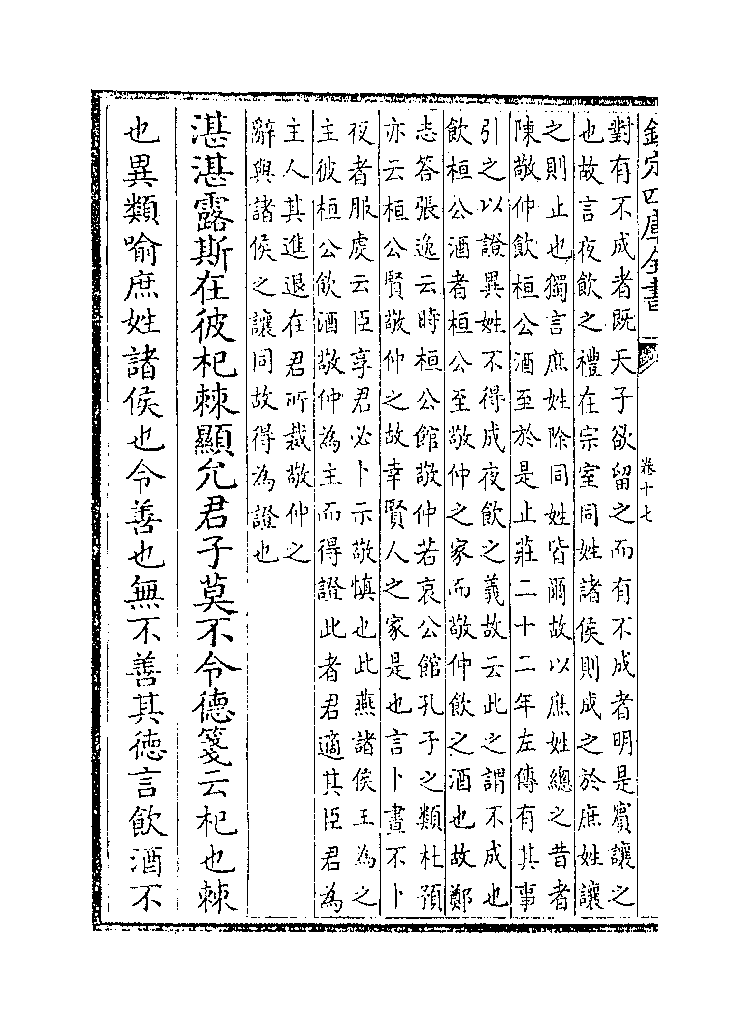 欽定四庫全書
卷十七
對有不成者既天子欲留之而有不成者明是賓讓之
也故言夜飲之禮在宗室同姓諸侯則成之於庶姓讓
之則止也獨言庶姓除同姓皆爾故以庶姓總之昔者
陳敬仲飲桓公酒至於是止莊二十二年左傳有其事
引之以證異姓不得成夜飲之義故云此之謂不成也
飲桓公酒者桓公至敬仲之家而敬仲飲之酒也故鄭
志答張逸云時桓公館敬仲若哀公館孔子之類杜預
亦云桓公賢敬仲之故幸賢人之家是也言卜晝不卜
夜者服虔云臣享君必卜示敬慎也此燕諸侯王為之
主彼桓公飲酒敬仲為主而得證此者君適其臣君為
主人其進退在君所裁敬仲之
辭與諸侯之讓同故得為證也
湛湛露斯在彼杞棘顯允君子莫不令德箋云杞也棘
也異類喻庶姓諸侯也令善也無不善其徳言飲酒不